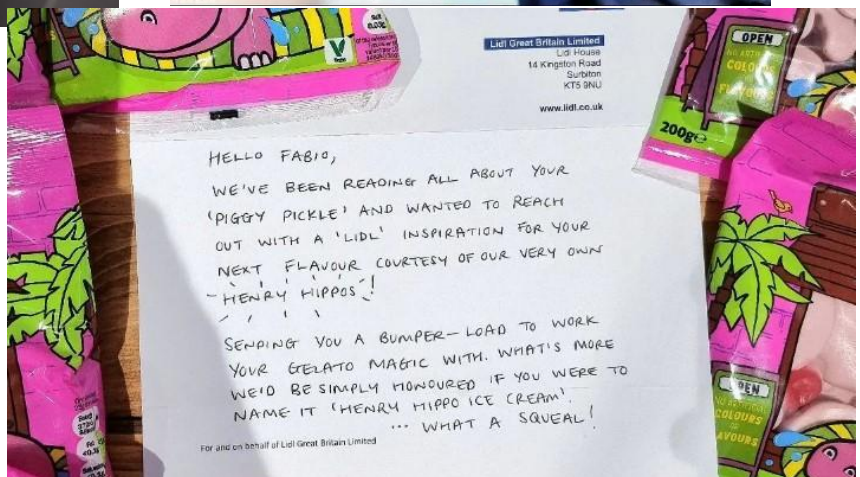 Lidl Great Britain Limited
Lidl House
14 Kingston Road
Surbiton
KT5 9NU
www.lidl.co.uk
OPEN
COLOURS
FLAVOURS
200g℮
HELLO FABIO,
WE'VE BEEN READING ALL ABOUT YOUR
'PIGGY PICKLE' AND WANTED TO REACH
OUT WITH A 'LIDL' INSPIRATION FOR YOUR
NEXT FLAVOUR COURTESY OF OUR VERY OWN
'HENRY HIPPOS'!
SENDING YOU A BUMPER-LOAD TO WORK
YOUR GELATO MAGIC WITH. WHAT'S MORE
WE'D BE SIMPLY HONOURED IF YOU WERE TO
NAME IT 'HENRY HIPPO ICE CREAM'.
... WHAT A SQUEAL!
For and on behalf of Lidl Great Britain Limited
OPEN
COLOURS